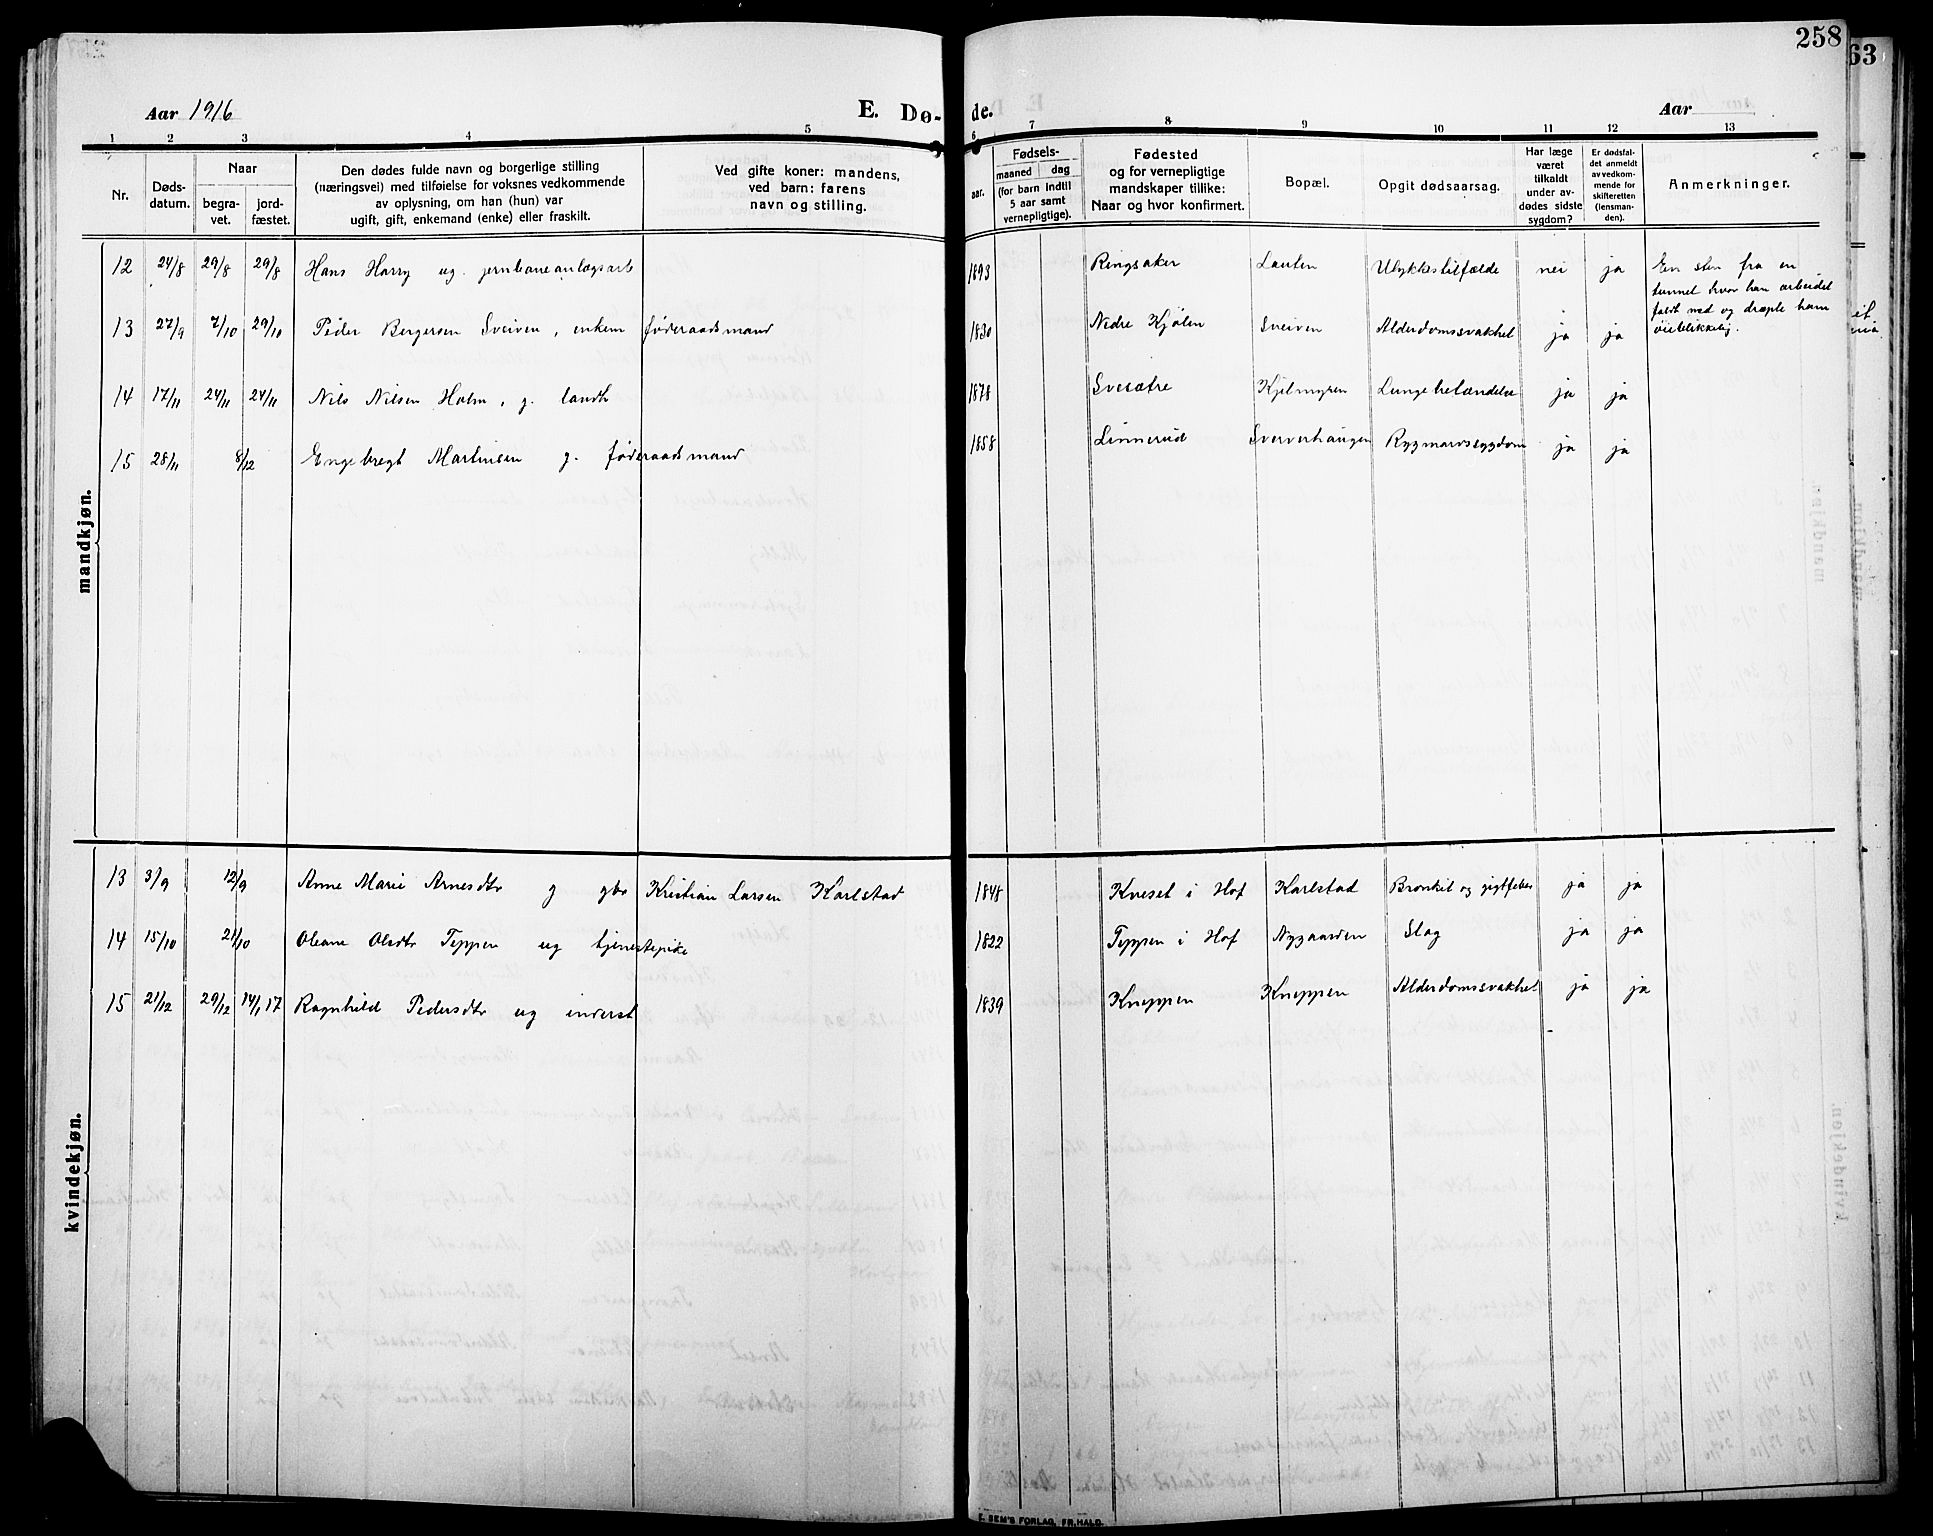 258
63
Aar 1916
E. Dø-
de.
Aar
1 2 3 4 5 6 7 8 9 10 11 12 13
Nr.
Døds-
datum.
Naar
begra-
vet.
jord-
fæstet.
Den dødes fulde navn og borgerlige stilling
(næringsvei) med tilføielse for voksnes vedkommende
av oplysning, om han (hun) var
ugift, gift, enkemand (enke) eller fraskilt.
Ved gifte koner: mandens,
ved barn: farens
navn og stilling.
aar.
Fødsels-
maaned dag
(for barn indtil
5 aar samt
vernepligtige).
Fødested
og for vernepligtige
mandskaper tillike:
Naar og hvor konfirmert.
Bopæl.
Opgit dødsaarsag.
Har læge
været
tilkaldt
under av-
dødes sidste
sygdom?
Er dødsfal-
det anmeldt
av vedkom-
mende for
skifteretten
(lensman-
den).
Anmerkninger.
mandkjøn.
12 24/8 29/8 29/8 Hans Harry ug. jernbaneanlægsarb 1893 Ringsaker Lauten Ulykkestilfælde nei ja
En sten fra en
tunnel hvor han arbeidet
faldt ned og dræpte ham
øieblikkelig.
13 27/9 7/10 29/10 Peder Bergersen Sveiven, enkem føderaadsmand 1830 Nedre Kjølen Sveiven Alderdomssvakhet ja ja
14 17/11 24/11 24/11 Nils Nilsen Holm, g. landh 1878 Svesætre Kjølmyren Lungebetændelse ja ja
15 28/11 8/12 Engebregt Martinsen g. føderaadsmand 1858 Linnerud Sververhaugen Rygmarvssygdom ja ja
kvindekjøn.
13 3/9 12/9 Anne Marie Arnesdtr g gbr Kristian Larsen Karlstad 1848 Kveset i Hof Karlstad Bronkit og gigtfeber ja ja
14 15/10 21/10 Oleane Olsdtr Teppen ug tjenestepike 1822 Teppen i Hof Nygaarden Slag ja ja
15 21/12 29/12 14/1 17 Ragnhild Pedersdtr ug inderst 1839 Kneppen Kneppen Alderdomssvakhet ja ja
E. SEM'S FORLAG, FR.HALD.